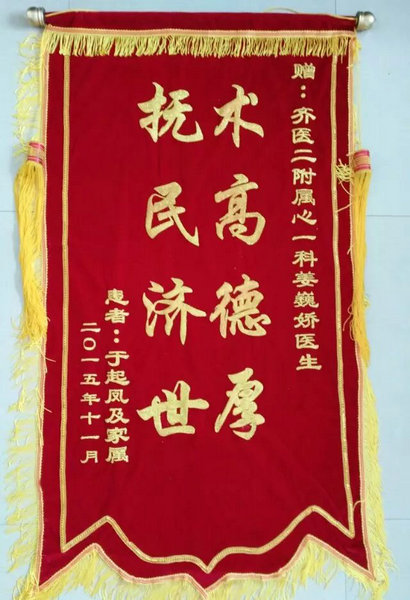 赠：齐医二附属心一科姜巍娇医生
术高德厚
抚民济世
患者：于起凤及家属
二〇一五年十一月